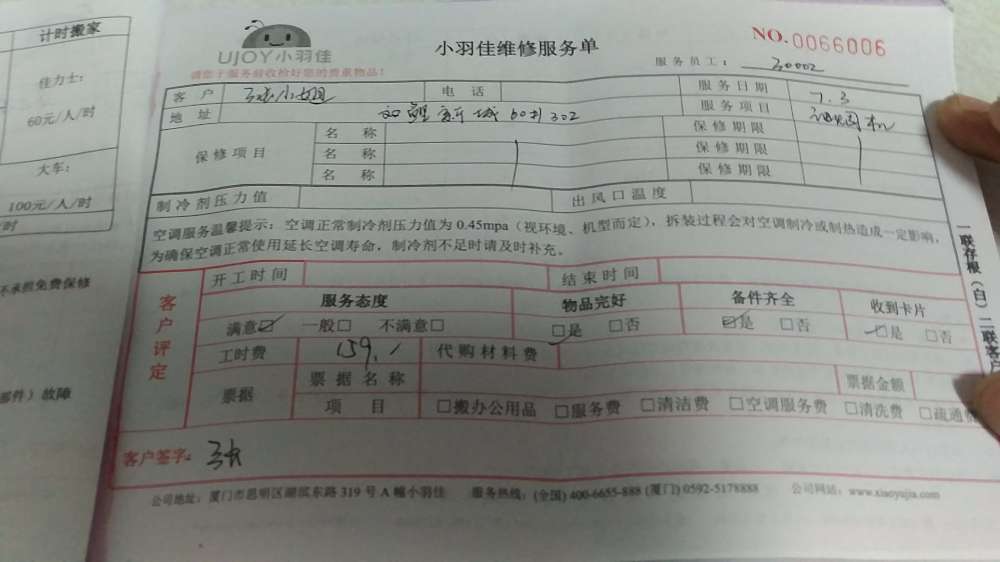 计时搬家
佳力士：
60元/人/时
大车：
100元/人/时
不承担免费保修
部件）故障
UJOY小羽佳
小羽佳维修服务单
NO.0066006
请您于服务前收检好您的贵重物品！
服务员工：30002
客户 张小姐 电话 服务日期 7.3
地址 新城60#302 服务项目 油烟机
保修项目 名称 保修期限
名称 保修期限
名称 保修期限
制冷剂压力值 出风口温度
空调服务温馨提示：空调正常制冷剂压力值为 0.45mpa（视环境、机型而定），拆装过程会对空调制冷或制热造成一定影响，
为确保空调正常使用延长空调寿命，制冷剂不足时请及时补充。
客户评定
开工时间 结束时间
服务态度 物品完好 备件齐全 收到卡片
满意☑ 一般□ 不满意□ ☑是 □否 ☑是 □否 ☑是 □否
工时费 159. 代购材料费
票据 票据名称 票据金额
项目 □搬办公用品 □服务费 □清洁费 □空调服务费 □清洗费 □疏通
客户签字：张
公司地址：厦门市思明区湖滨东路 319 号 A 幢小羽佳 服务热线：(全国) 400-6655-888 (厦门) 0592-5178888 公司网站：www.xiaoyujia.com
一联存根（白）二联客户